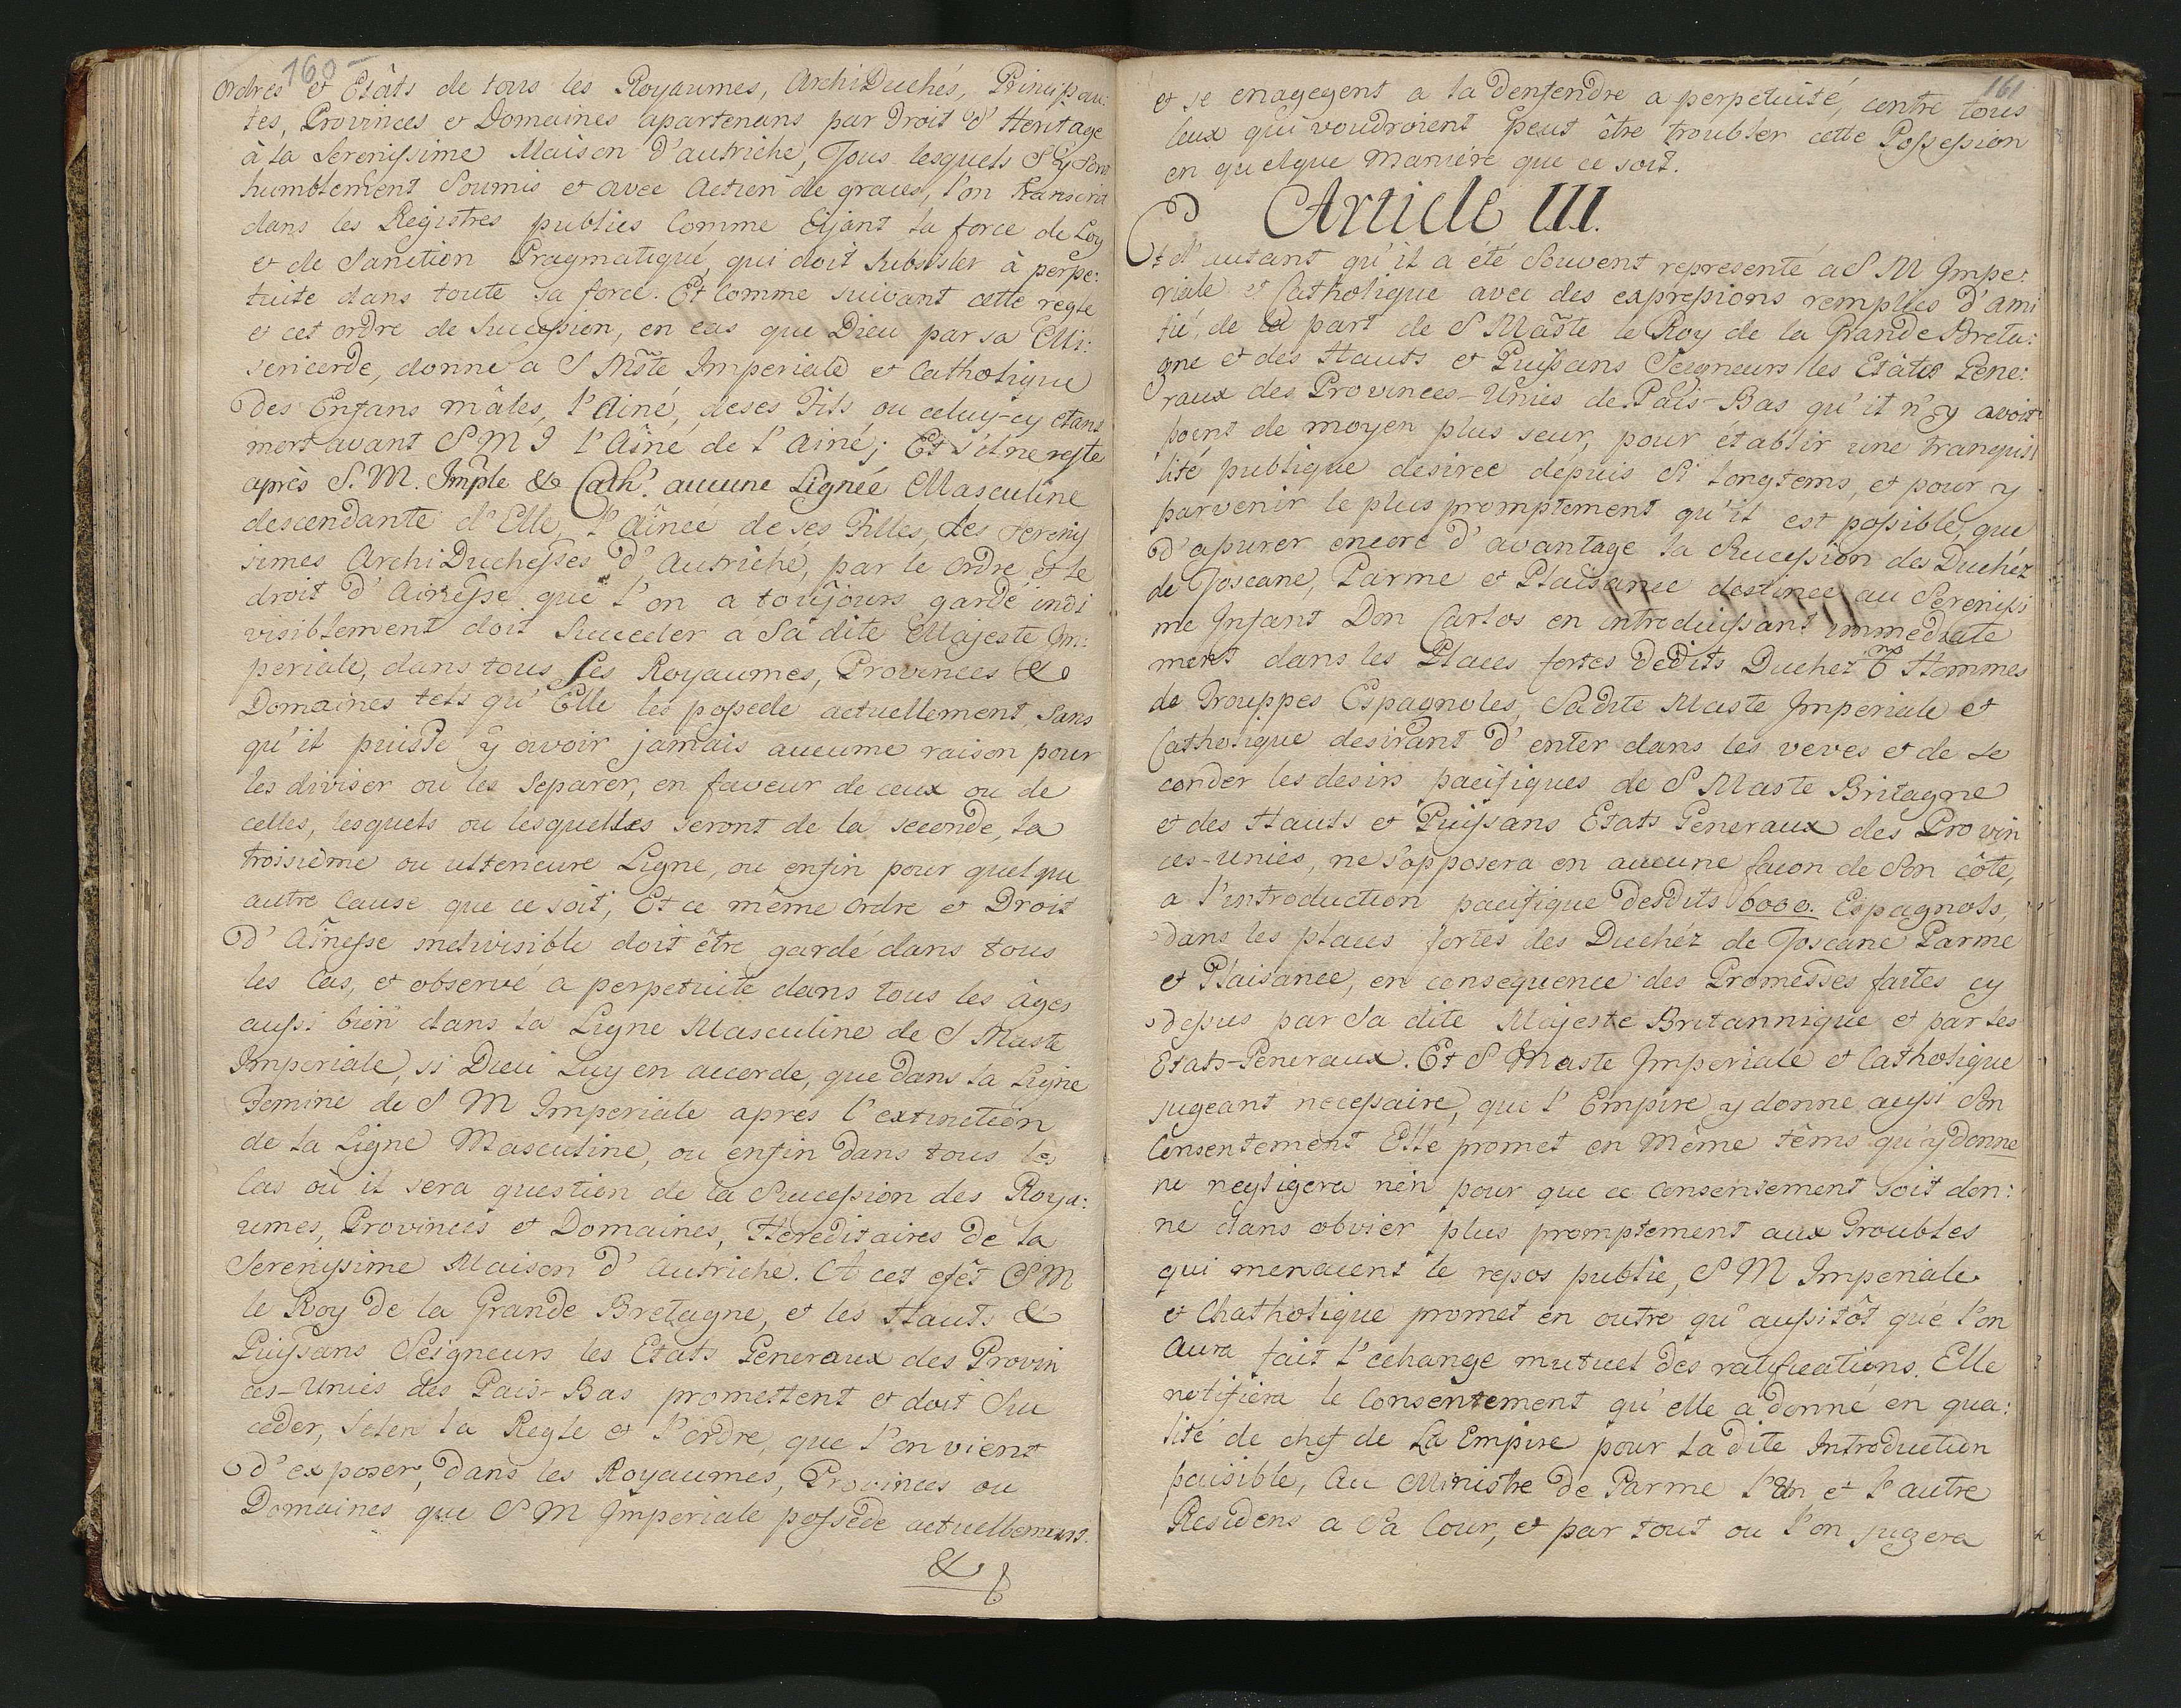 160
ordres et Etâts de tous les Royaumes, ArchiDuchés, Principau:
tes, Provinces et Domaines apartenans par Droit d'Heritage
à la Serenissime Maison d'autriche, Tous lesquels s'y sont
humblement Soumis et avec Action de graces, l'on transcrit
dans les Registres publics Comme aijant la force de Loy
et de Sanction Pragmatique, qui doit Subsister à perpe:
tuite dans toute sa force. Et comme suivant cette regle
et cet ordre de Succession, en cas que Dieu par sa Mi:
sericorde, donne a S Mste Imperiale et Catholique
Des Enfans mâles, l'Ainé, deses Fils, ou celuy-cy etant
mort avant S M I l'Aîné de l'Ainé; Et s'il ne reste
après S. M. Imple & Cath. aucune Lignée Masculine
descendante d'Elle, l'aîneé de ses Filles, Les Sereniss
simes ArchiDuchesses d'Autriche, par le ordre et le
droit d'Ainesse que l'on a toûjours gardé indi
visiblement doit Succeder a Sa dite Majeste Im:
periale, dans tous ses Royaumes, Provinces &
Domaines tels qu'Elle les possede actuellement, sans
qu'il puisse y avoir jamais aucune raison pour
les diviser ou les Separer, en faveur de ceux ou de
celles, lesquels ou lesquelles seront de la seconde, la
troisiéme ou ulterieure Ligne, ou enfin pour quelque
autre Cause que ce soit, Et ce même Ordre et Droit
d'Aînesse indivisible doit être gardé dans tous
les Cas, et observé a perpetuite dans tous les âges
aussi bien dans la Ligne Masculine de S Maste
Imperiale, si Dieu Luy en accorde, que dans la Ligne
Femine de S M Imperiale apres l'extinction
de la Ligne Masculine, ou enfin dans tous les
Cas où il sera question de la Succession des Roya:
umes, Provinces et Domaines, Hereditaires de la
Serenissime Maison d'Autriche. A cet efét S M
le Roy de la Grande Bretagne, et les Hauts &
Puissans Seigneurs les Etats Generaux des Provin
ces-Unies des Pais-Bas promettent et doit Suc
ceder, selen la Regle et l'ordre, que l'on vient
d'exposer, dans les Royaumes, Provinces ou
Domaines que S M Imperiale possede actuellement.
&
161
et se enagegent a la denfendre a perpetuité, contre tous
Ceux qui voudroient peut être troubler cette Possession
en quelque Maniére que ce soit.
Article III.
Et d'autant qu'il a été Souvent representé á S M Impe:
riale et Catholique avec des expressions remplies d'ami
tié, de la part de S Maste le Roy de la Grande Breta:
gne et des Hauts et Puissans Seigneurs les Etâts Gene:
raux des Provinces-Unies de Païs-Bas qu'il n'y avoit
point de moyen plus seur, pour établir une tranquil
lité publique desirée depuis Si longtems, et pour y
parvenir le plus promptement qu'il est possible, que
d'apurer encore d'avantage la Succession des Duchéz
de Toscane, Parme et Plaisance destinee au Serenissi
me Infant Don Carlos en introduissant immediate
ment dans les Places fortes Dedits Duchez 6m Hommes
de Trouppes Espagnoles, Sadite Maste Imperiale et
Catholique desirant d'enter dans les veves et de se
conder les desirs pacifiques de S Maste Britagne
et des Hauts et Puissans Etats Generaux des Provin
ces-unies, ne s'opposera en aucune facon de Son côte,
a l'introduction pacifique desdits 6000. Espagnols,
dans les places fortes des Duchéz de Toscane Parme
et Plaisance, en consequence des Promesses faites cy
dessus par Sa dite Majeste Britannique et par les
Etats-Generaux. Et S Maste Imperiale et Catholique
jugeant necessaire, que l'Empire y donne aussi Son
Consentement Elle promet en Même têms qu'y donne
ne negligera rien pour que ce consensement soit don:
ne dans obvier plus promptement aux Troubles
qui menacent le repos public, S M Imperiale
et Chatholique promet en outre qu'aussitôt que l'on
aura fait l'echange mutuel des ratifications. Elle
notifiera le Consentement qu'elle a donné en qua:
lité de chef de La Empire pour la dite Introduction
paisible, Au Ministre de Parme l'Un et l'autre
Residens a Sa Cour, et par tout ou l'on jugera